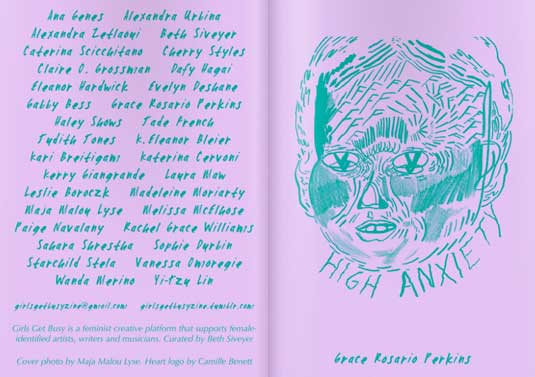 Ana Genes Alexandra Urbina
Alexandra Zetlaoui Beth Siveyer
Caterina Scicchitano Cherry Styles
Claire O. Grossman Dafy Hagai
Eleanor Hardwick Evelyn Deshane
Gabby Bess Grace Rosario Perkins
Haley Shows Jade French
Judith Jones K.Eleanor Bleier
Kari Breitigam Katerina Cervoni
Kerry Giangrande Laura Maw
Leslie Boroczk Madeleine Moriarty
Maja Malou Lyse Melissa McElhose
Paige Navalany Rachel Grace Williams
Sahara Shrestha Sophie Durbin
Starchild Stela Vanessa Omoregie
Wanda Merino Yi-Tzy Lin
girlsgetbusyzine@gmail.com girlsgetbusyzine.tumblr.com
Girls Get Busy is a feminist creative platform that supports female-
identified artists, writers and musicians. Curated by Beth Siveyer
Cover photo by Maja Malou Lyse. Heart logo by Camille Benett
HIGH ANXIETY
Grace Rosario Perkins